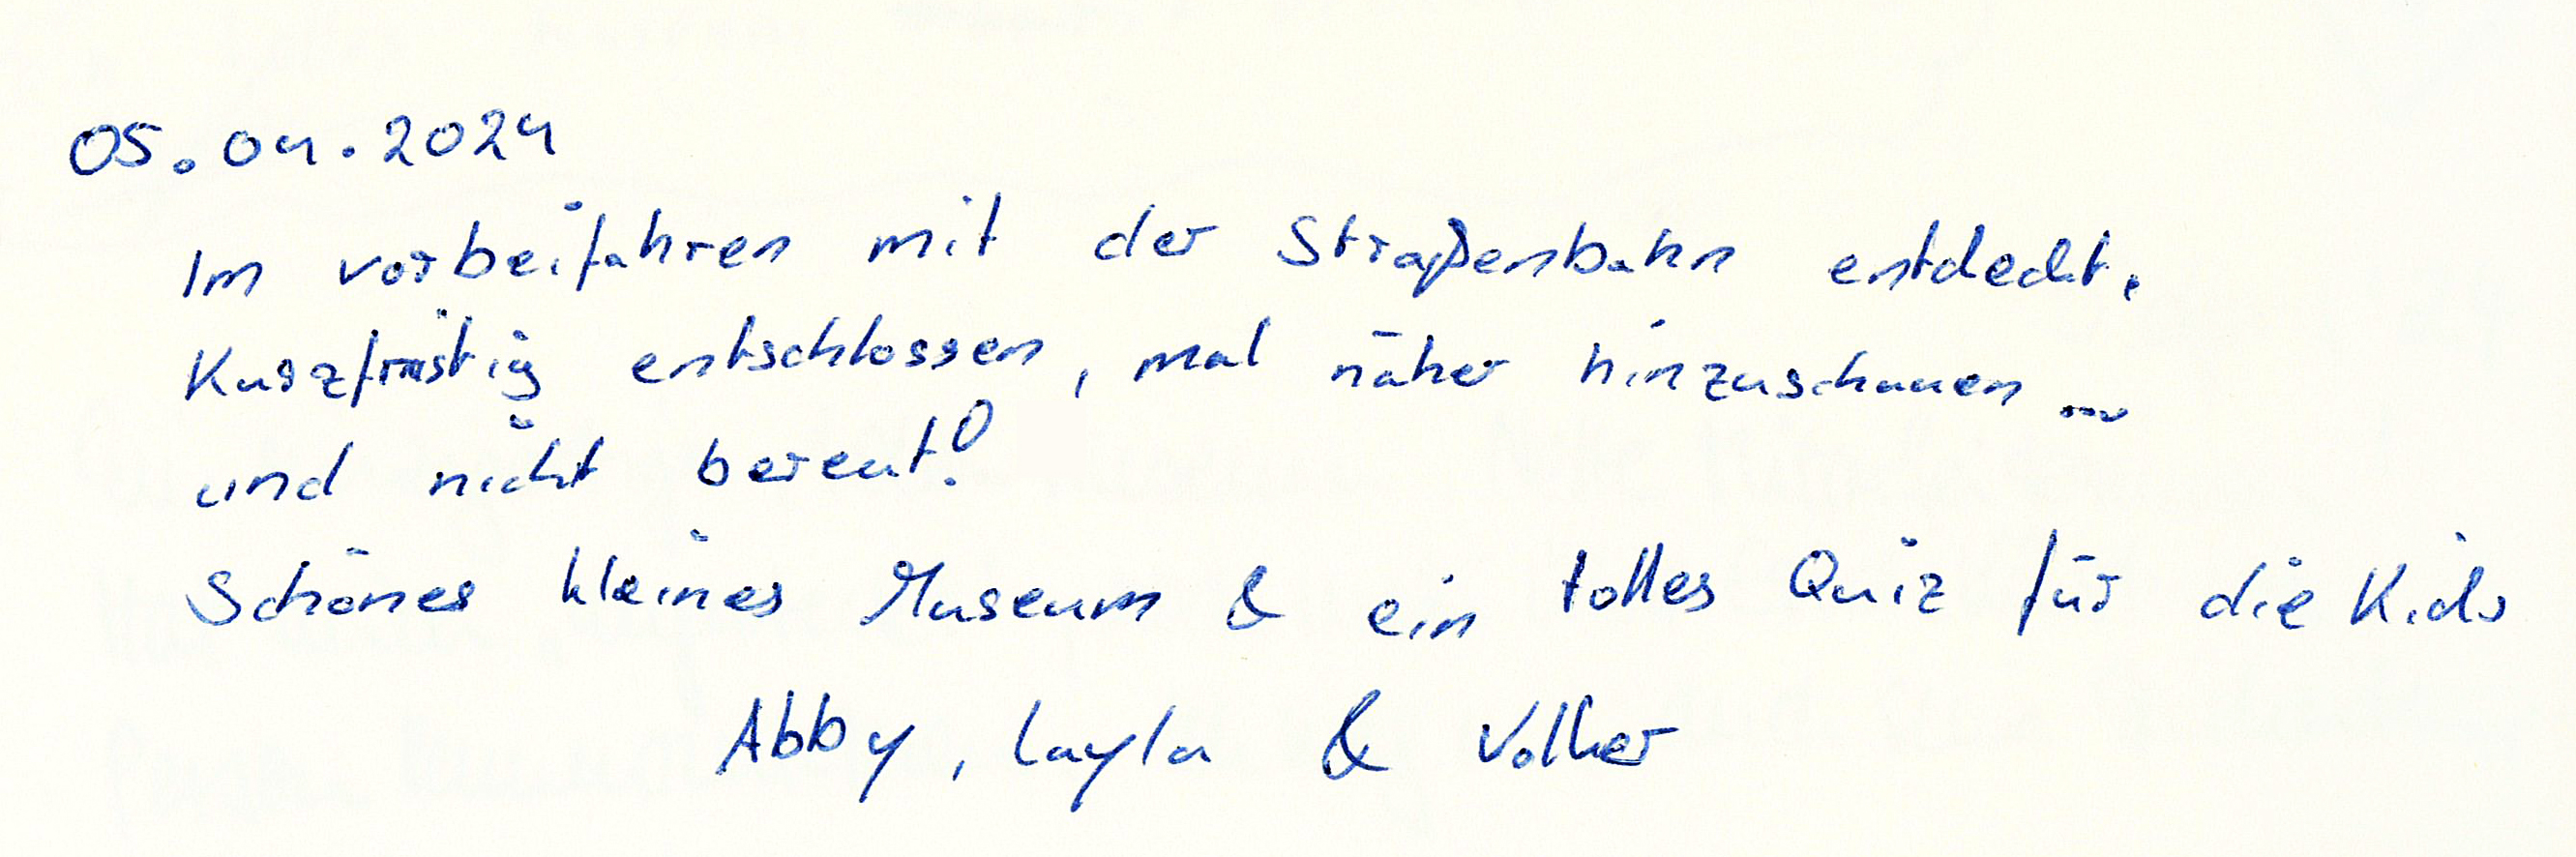 05.04.2024
Im vorbeifahren mit der Straßenbahn entdeckt.
Kurzfristig entschlossen, mal näher hinzuschauen ...
und nicht bereut!
Schönes kleines Museum & ein tolles Quiz für die Kids
Abby, Layla & Volker